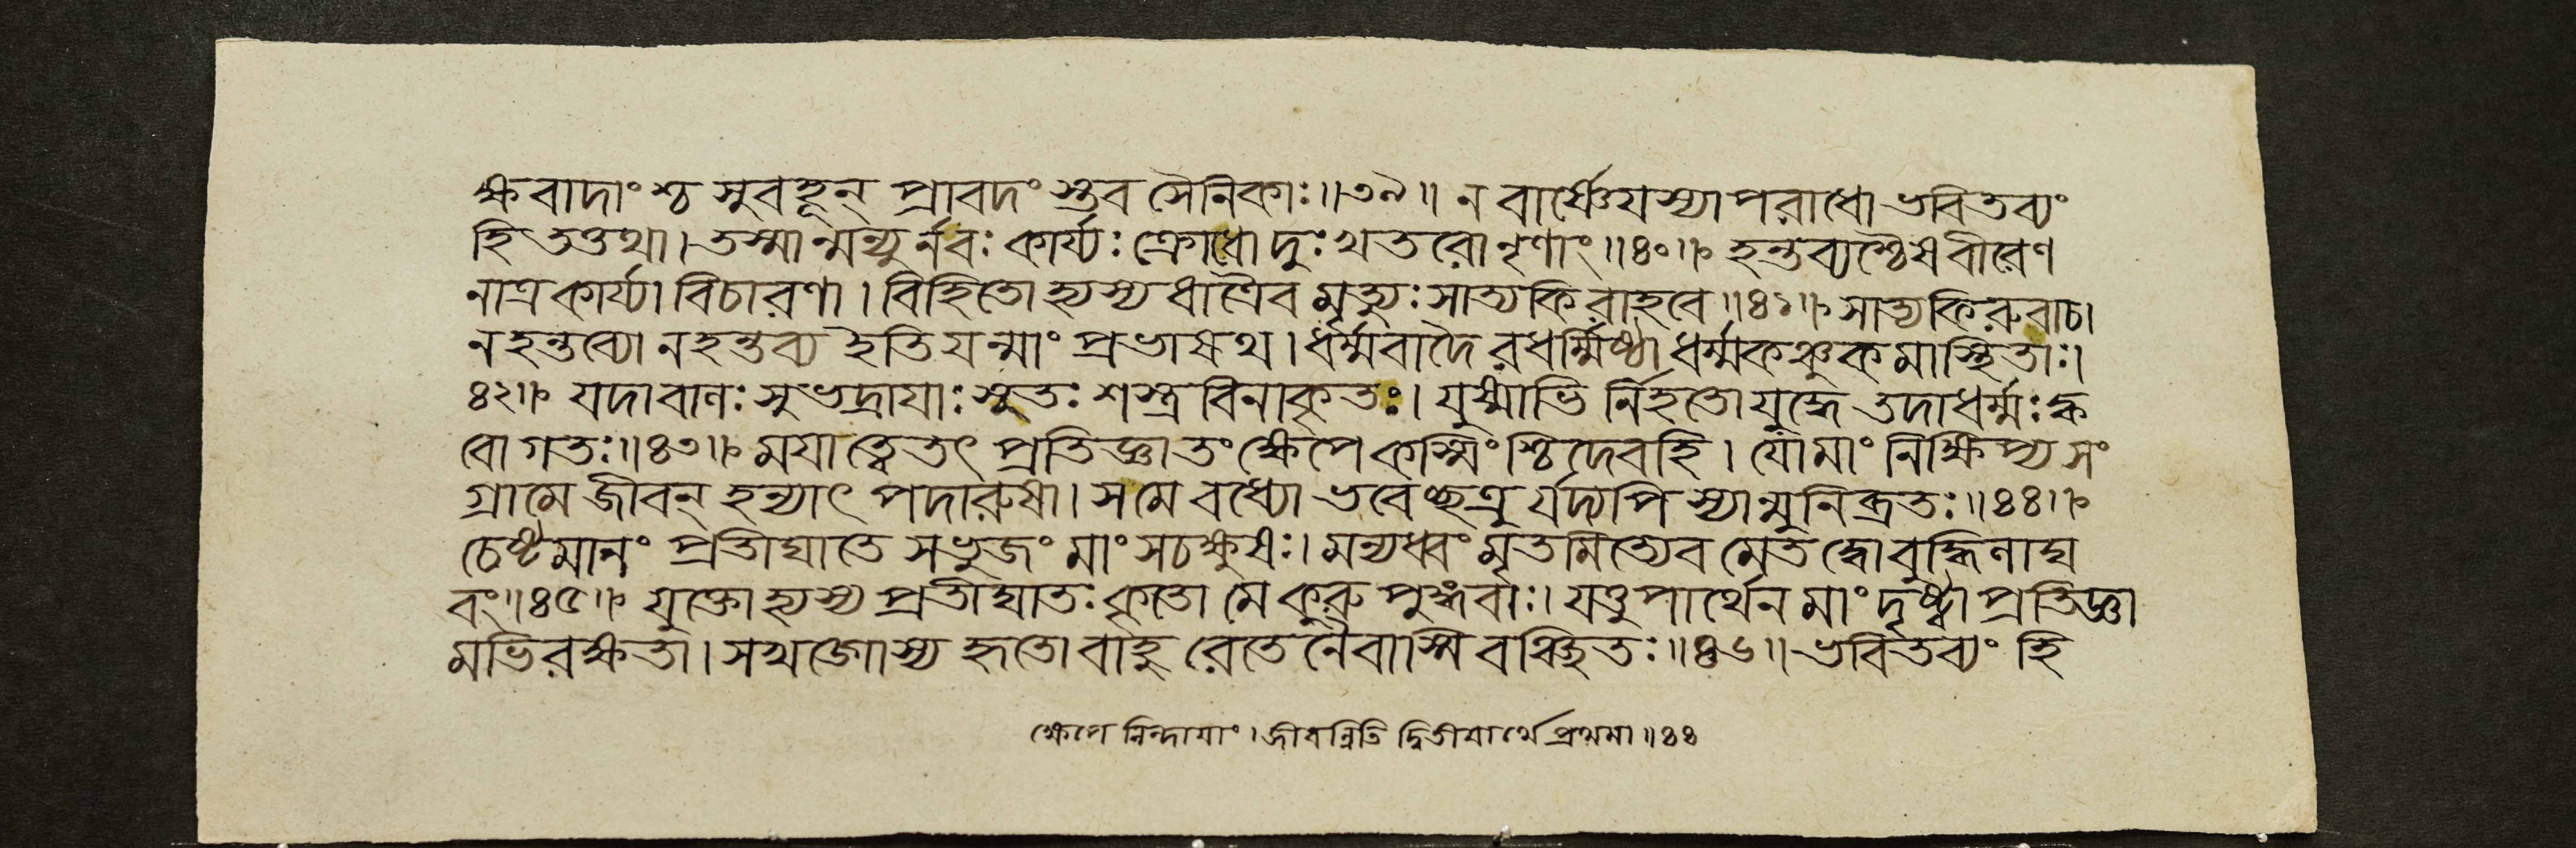 ক্ষবাদাংশ্চ সুবহূন্ প্রাবদংস্তব সৈনিকাঃ॥৩৯॥ ন বার্ষ্ণেয়স্যাপরাধো ভবিতব্যং
হি তত্তথা। তস্মান্মন্যুর্নবঃ কার্য্যঃ ক্রোধো দুঃখতরো নৃণাং॥৪০॥ হন্তব্যশ্চৈষ বীরেণ
নাত্র কার্য্যা বিচারণা। বিহিতো হ্যস্য ধাত্রৈব মৃত্যুঃ সাত্যকিরাহবে॥৪১॥ সাত্যকিরুবাচ।
ন হন্তব্যো ন হন্তব্য ইতি যন্মাং প্রভাষথ। ধর্ম্মবাদৈরধর্ম্মিষ্ঠা ধর্ম্মকঞ্চুকমাস্থিতাঃ।
৪২॥ যদা বাণঃ সুভদ্রায়াঃ সুতঃ শস্ত্রবিনাকৃতঃ। যুষ্মাভির্নিহতো যুদ্ধে তদা ধর্ম্মঃ ক্ব
বো গতঃ॥৪৩॥ ময়া ত্বেতৎ প্রতিজ্ঞাতং ক্ষেপে কস্মিংশ্চিদেব হি। যো মাং নিক্ষিপ্য সং
গ্রামে জীবন্ হন্যাৎ পদা রুষা। স মে বধ্যো ভবেচ্ছত্রুর্যদ্যপি স্যান্মুনিব্রতঃ॥৪৪॥
চেষ্টমানং প্রতীঘাতে সভুজং মাং সচক্ষুষঃ। মন্যধ্বং মৃতমিত্যেব মেতদ্বো বুদ্ধিলাঘ
বং॥৪৫॥ যুক্তো হ্যস্য প্রতীঘাতঃ কৃতো মে কুরুপুঙ্গবাঃ। যত্তু পার্থেন মাং দৃষ্ট্বা প্রতিজ্ঞা
মভিরক্ষতা। সখড়্গোস্য হৃতো বাহুরেতেনৈবাস্মি বঞ্চিতঃ॥৪৬॥ ভবিতব্যং হি
ক্ষেপে নিন্দায়াং। জীবন্নিতি দ্বিতীয়ার্থে প্রথমা॥৪৪